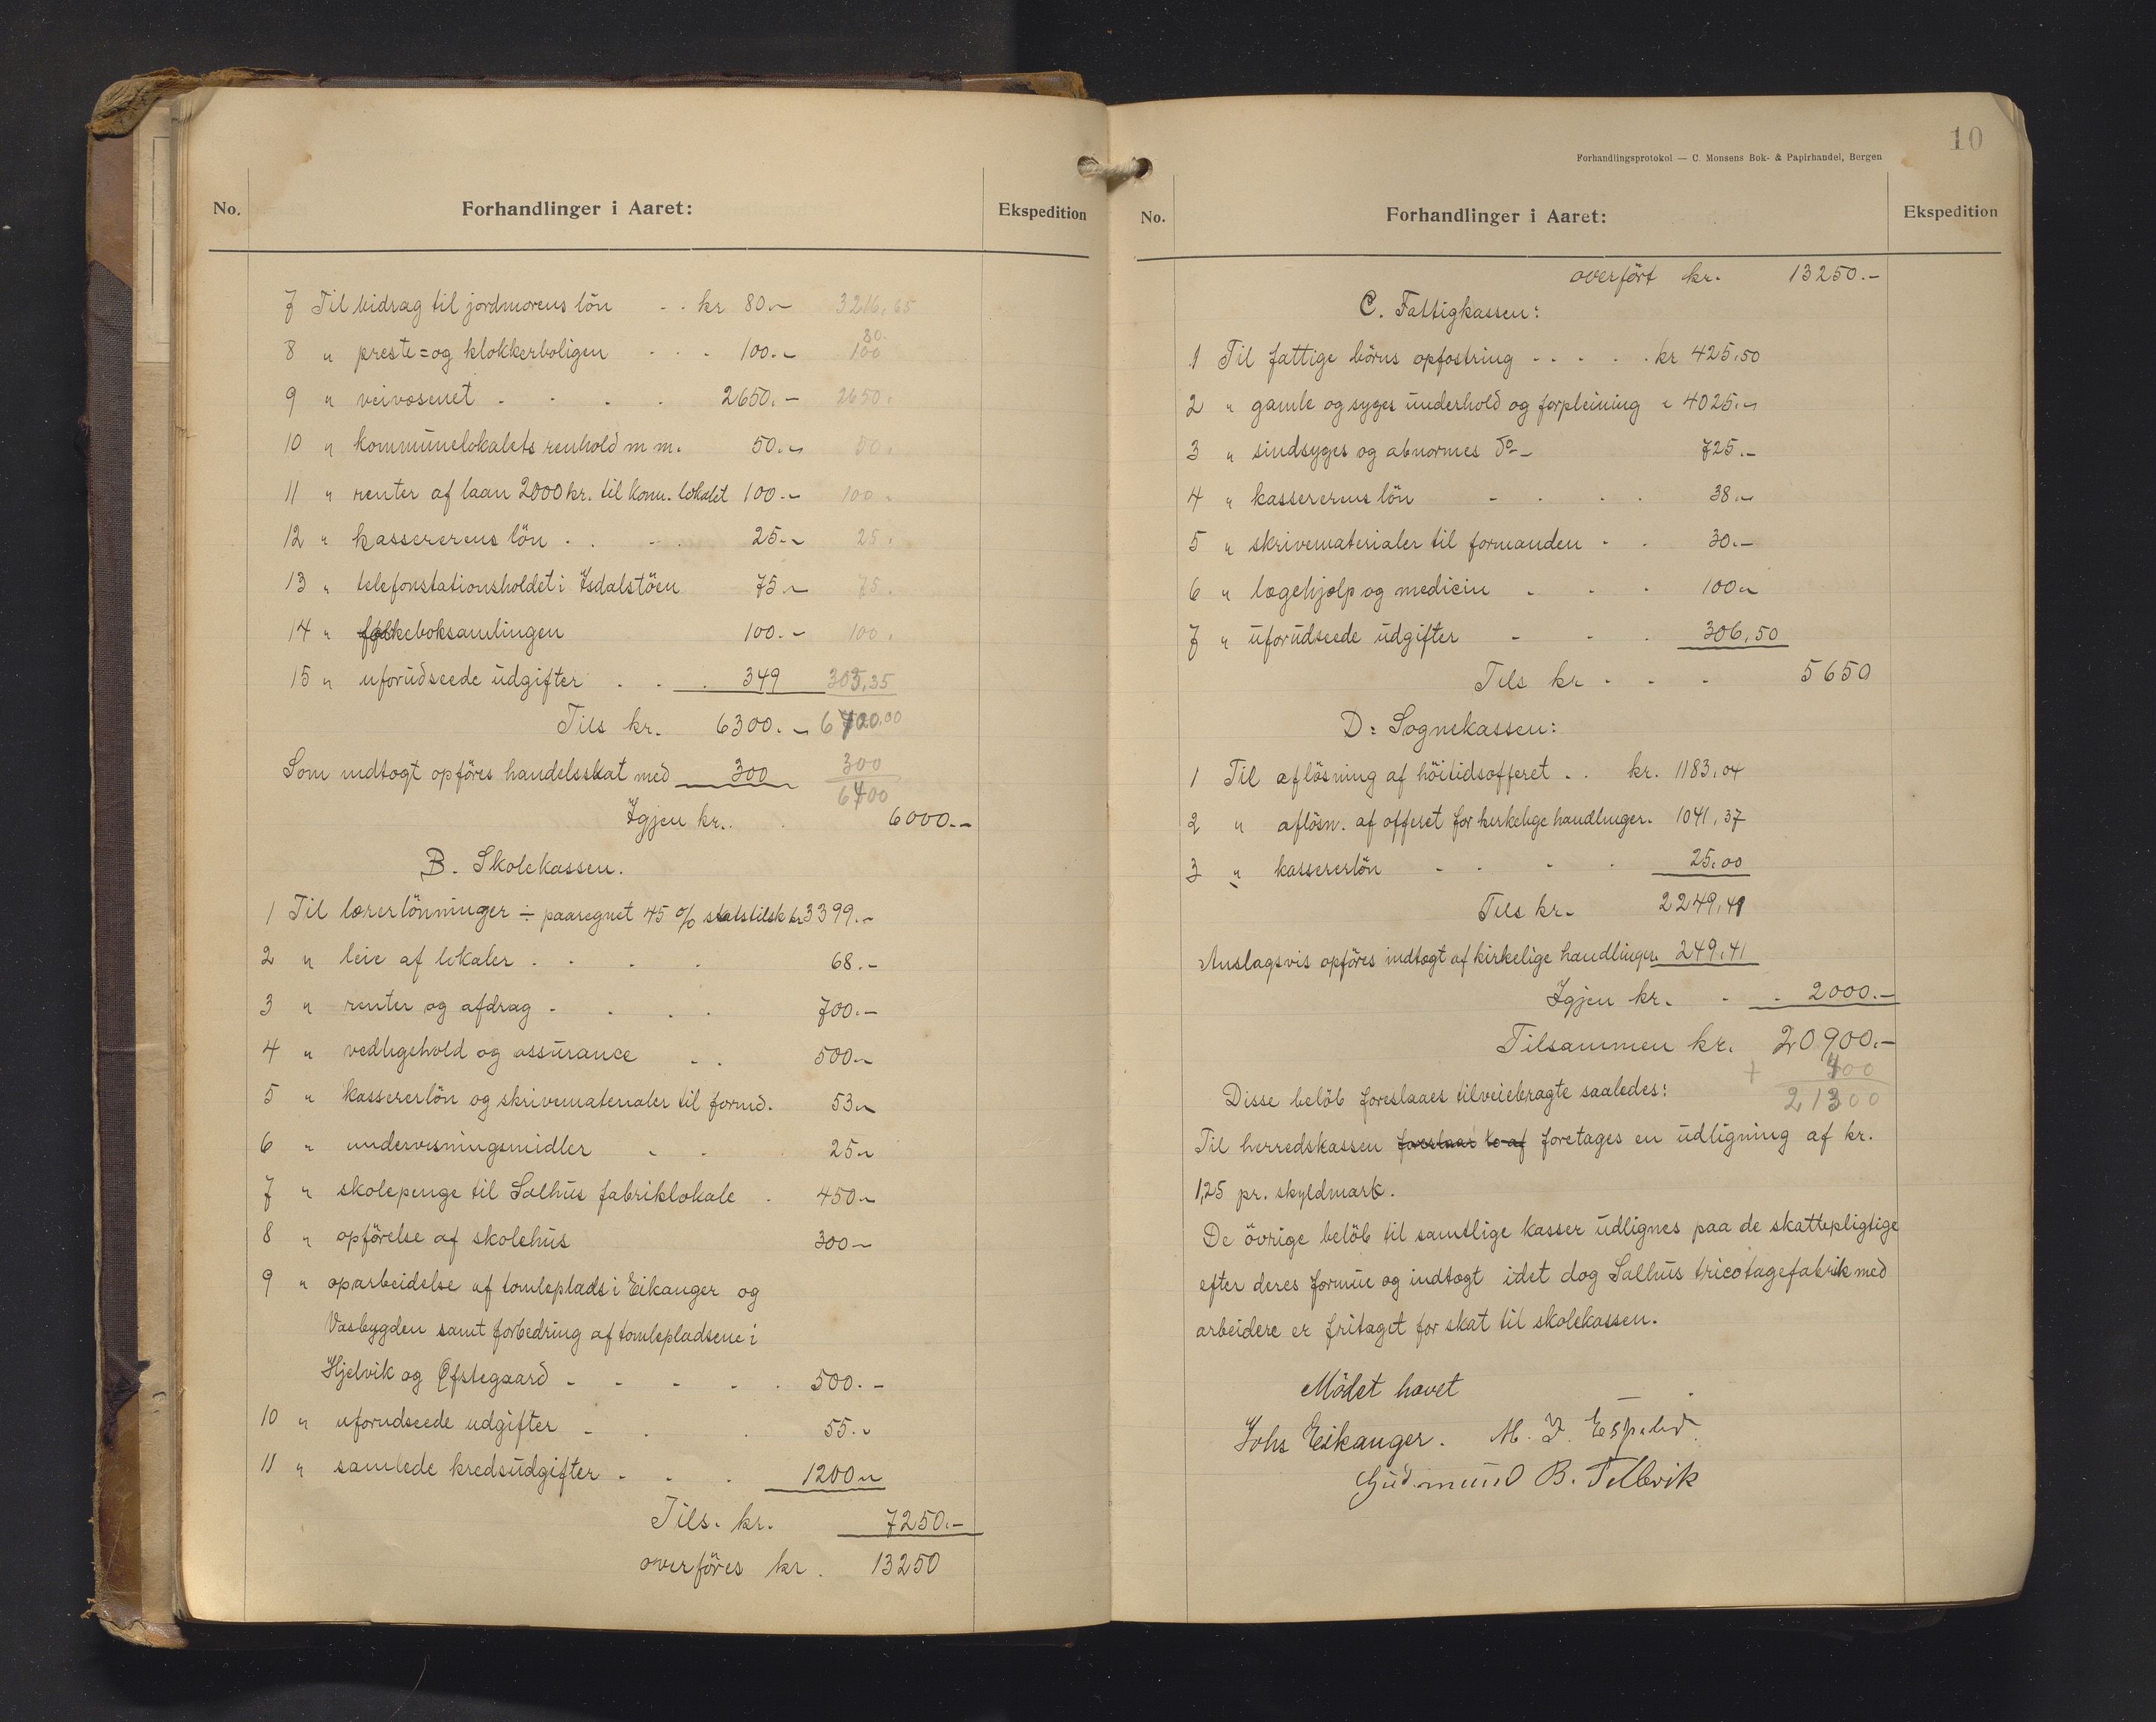 No. Forhandlinger i Aaret: Ekspedition
7 Til bidrag til jordmorens lön . . kr 80.- 3216,65
80.
8 " preste= og klokkerboligen . . . 100.- 100
9 " veivæsenet . . . . 2650.- 2650.
10 " kommunelokalets renhold m m. 50.- 50.
11 " renter af laan 2000 kr. til kom. lokalet 100.- 100.
12 " kassererens lön . . . . 25.- 25.
13 " telefonstationsholdet i Isdalstöen 75.- 75.
14 " folkeboksamlingen 100.- 100.
15 " uforudseede udgifter . . . 349 303,35
Tils kr. 6300.- 6700.00
Som indtægt opföres handelsskat med 300 300
6400
Igjen kr. . 6000.-
B. Skolekassen.
1 Til lærerlönninger ÷ paaregnet 45 % statstilsk kr 3399.-
2 " leie af lokaler . . . . 68.-
3 " renter og afdrag . . . . 700.-
4 " vedligehold og assurance . . 500.-
5 " kassererlön og skrivematerialer til formd. 53.-
6 " undervisningsmidler . . 25.-
7 " skolepenge til Salhus fabriklokale . 450.-
8 " opförelse af skolehus 300.-
9 " oparbeidelse af tomteplads i Eikanger og
Vasbygden samt forbedring af tomtepladsene i
Hjelvik og Øfstegaard . . . . . 500.-
10 " uforudseede udgifter . . . 55.-
11 " samlede kredsudgifter . . . 1200.-
Tils. kr. 7250.-
overföres kr. 13250
10
Forhandlingsprotokol — C. Monsens Bok- & Papirhandel, Bergen
No. Forhandlinger i Aaret: Ekspedition
overfört kr. 13250.-
C. Fattigkassen:
1 Til fattige börns opfostring . . . . . kr 425,50
2 " gamle og syges underhold og forpleining " 4025.-
3 " sindsyges og abnormes do - 725.-
4 " kassererens lön . . . . 38.-
5 " skrivematerialer til formanden . . 30.-
6 " lægehjælp og medicin . . . 100.-
7 " uforudseede udgifter . . . 306,50
Tils kr . . . 5650
D: Sognekassen:
1 Til aflösning af höitidsofferet . . kr. 1183,04
2 " aflösn. af offeret for kirkelige handlinger. 1041,37
3 " kassererlön . . . . 25,00
Tils kr. 2249,41
Anslagsvis opföres indtægt af kirkelige handlinger 249,41
Igjen kr. . . 2000.-
Tilsammen kr. 20900.-
+ 400
Disse belöb foreslaaes tilveiebragte saaledes: 21300
Til herredskassen foreslaar to af foretages en udligning af kr.
1,25 pr. skyldmark.
De övrige belöb til samtlige kasser udlignes paa de skattepligtige
efter deres formue og indtægt idet dog Salhus tricotagefabrik med
arbeidere er fritaget for skat til skolekassen.
Mödet hævet
Johs Eikanger. M. J. Espelid.
Gudmund B. Tellevik